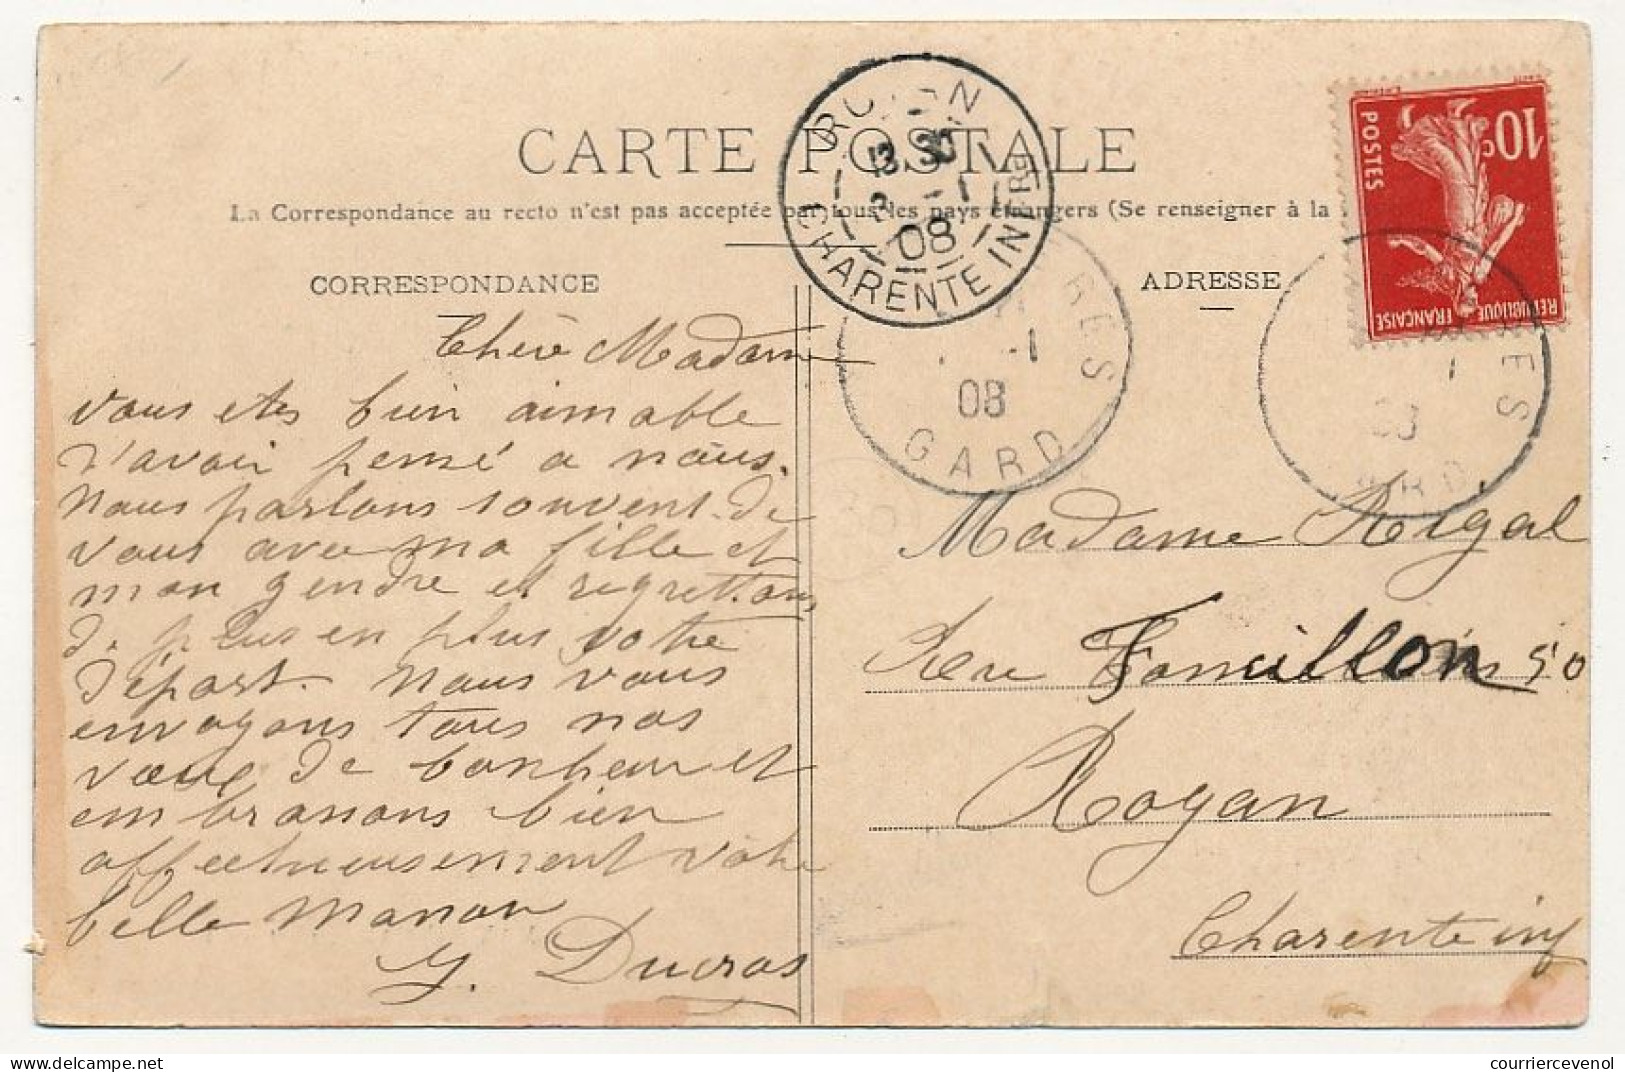 CARTE POSTALE
La Correspondance au recto n'est pas acceptée par tous les pays étrangers (Se renseigner à la
CORRESPONDANCE
ADRESSE
ROYAN
13 30
-1
08
CHARENTE INFRE
-1
08
GARD
08
10c
POSTES
REPUBLIQUE FRANÇAISE
Chère Madam
vous etes bien aimable
d'avoir pensé a nous.
Nous parlons souvent de
vous avec ma fille et
mon gendre et regrettons
de plus en plus votre
départ. Nous vous
envoyons tous nos
vœux de bonheur et
embrassons bien
affectueusement votre
belle Manon
Y. Ducros
Madame Rigal
Rue Foncillon 50
Royan
Charente inf
courriercevenol